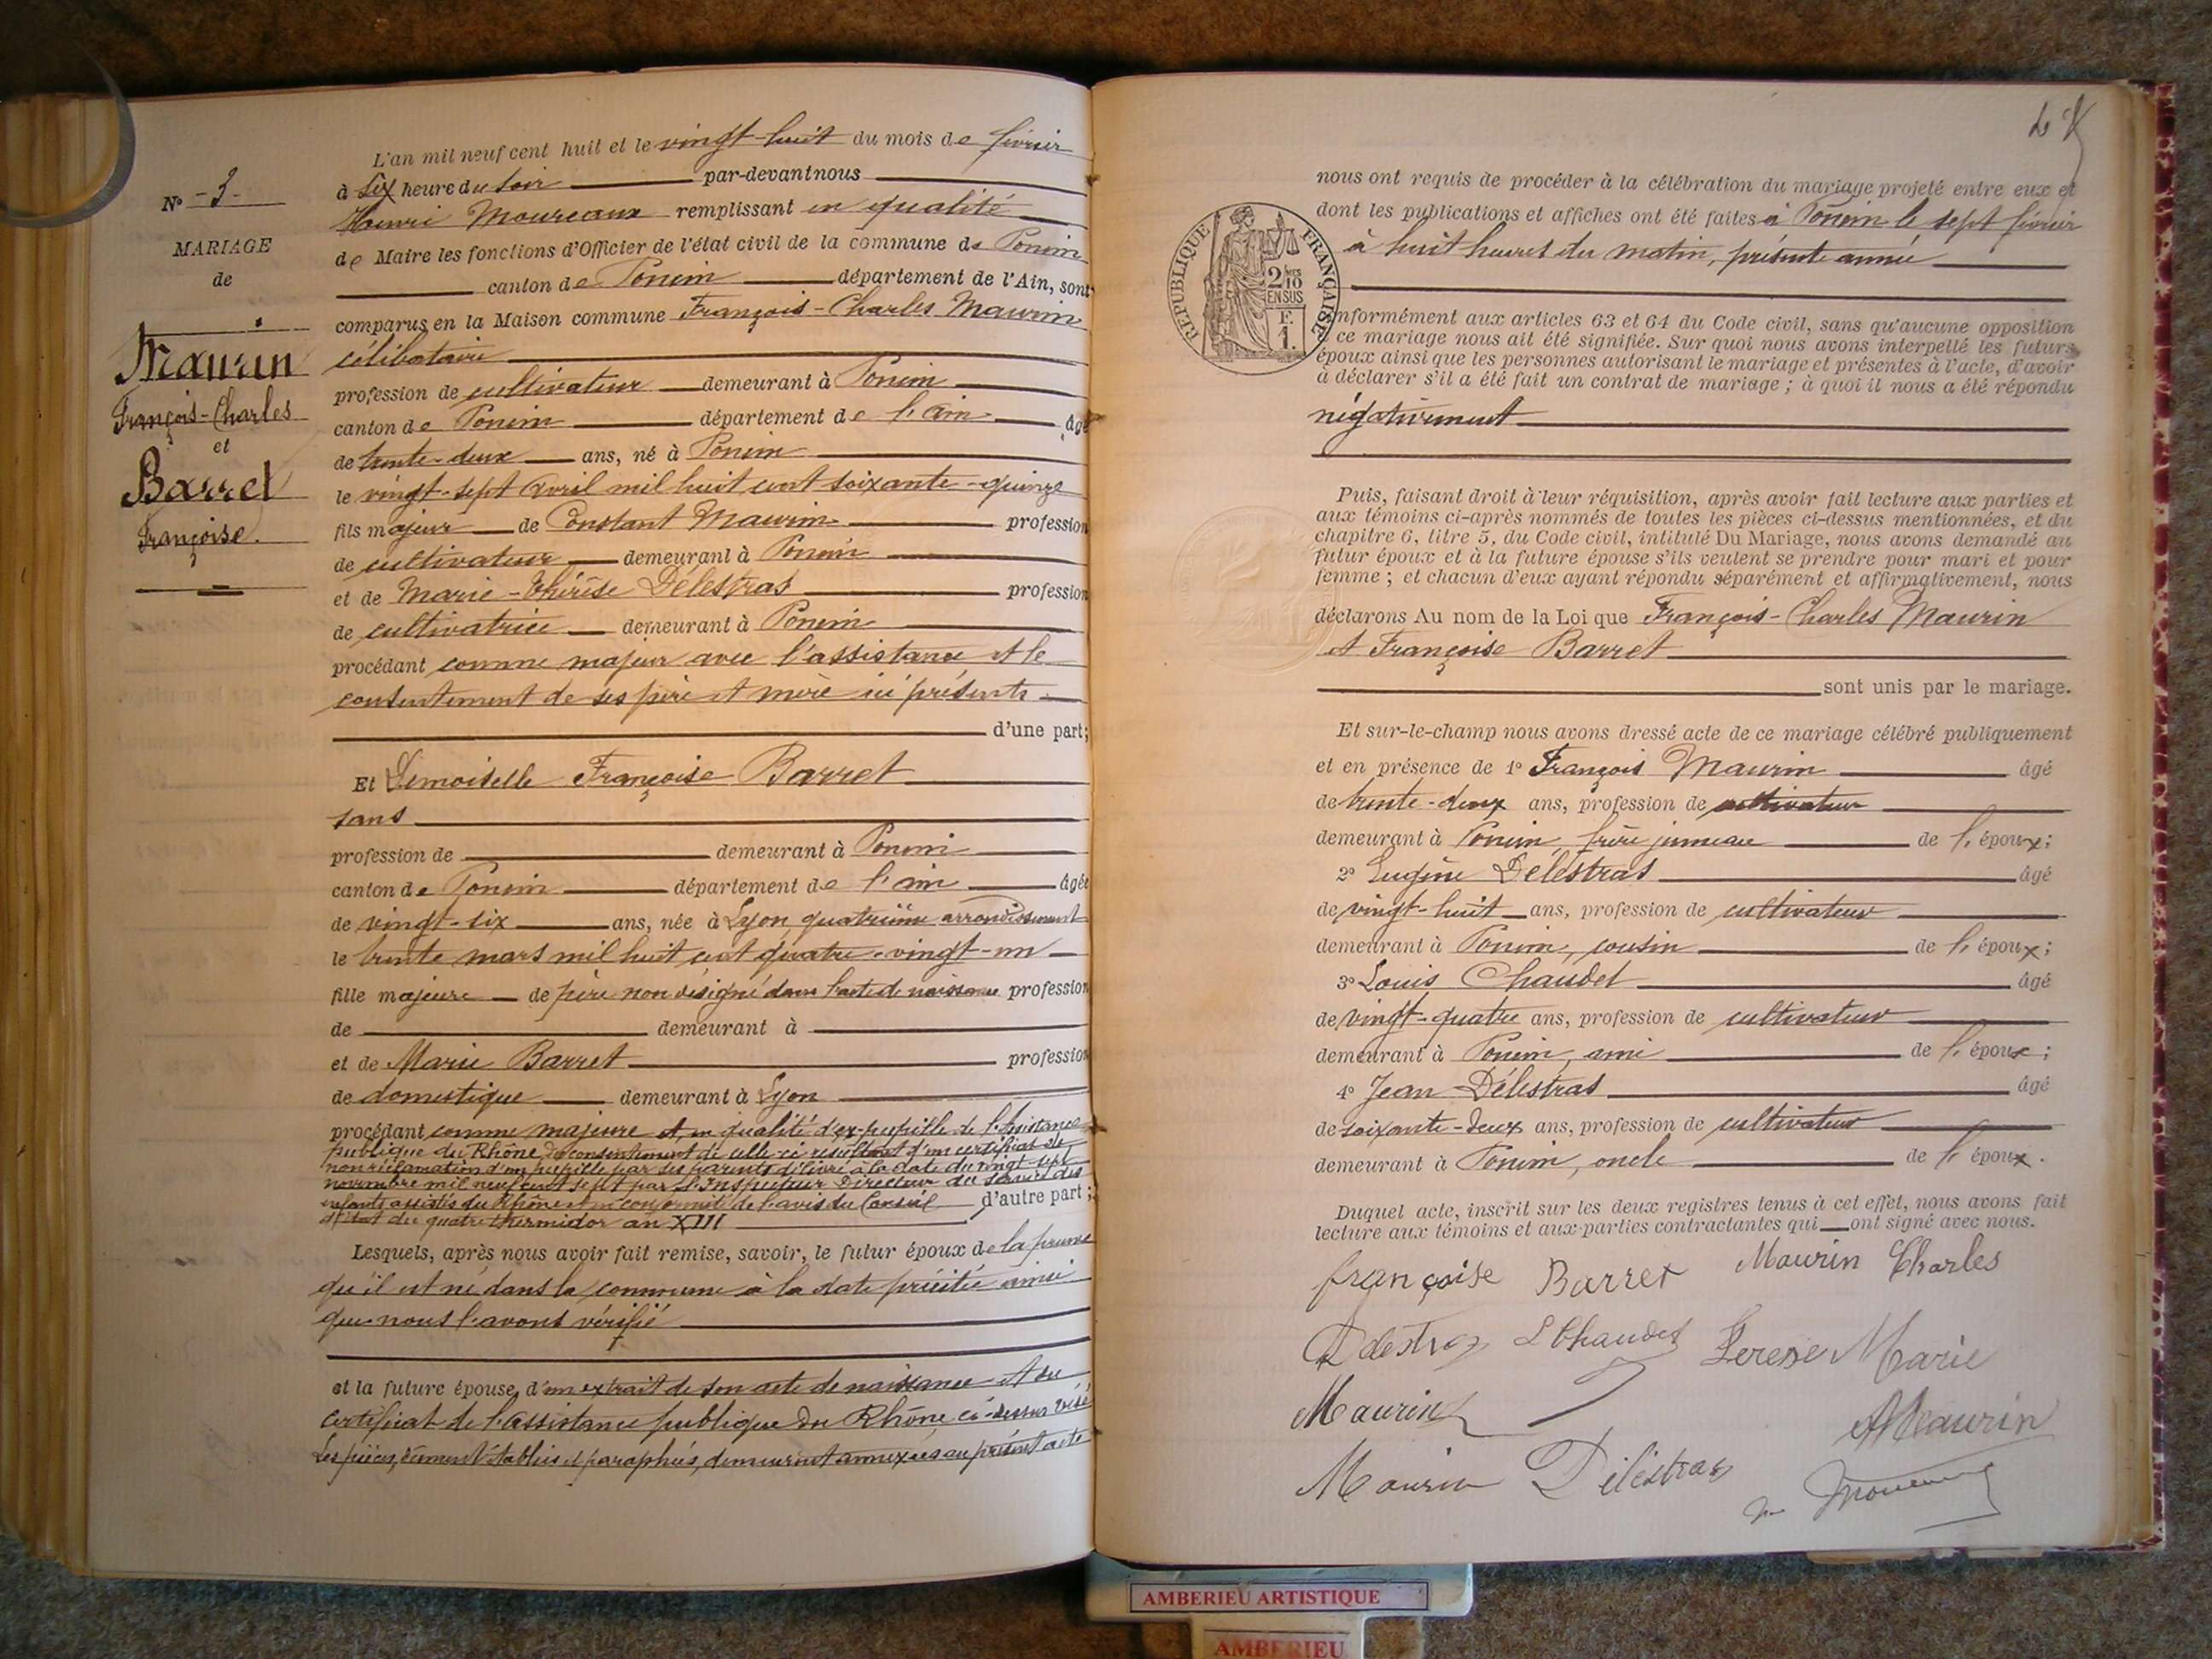 L'an mil neuf cent huit et le vingt-huit du mois de février
à six heure du soir par-devant nous
Henri Moureaux remplissant en qualité
de Maire les fonctions d'Officier de l'état civil de la commune de Poncin
canton de Poncin département de l'Ain, sont
comparus en la Maison commune François-Charles Maurin
célibataire
profession de cultivateur demeurant à Poncin
canton de Poncin département de l'Ain âgé
de trente-deux ans, né à Poncin
le vingt-sept avril mil huit cent soixante-quinze
fils majeur de Constant Maurin profession
de cultivateur demeurant à Poncin
et de Marie-Thérèse Délestras profession
de cultivatrice demeurant à Poncin
procédant comme majeur avec l'assistance et le
consentement de ses père et mère ici présents
d'une part;
Et Demoiselle Françoise Barret
sans
profession de demeurant à Poncin
canton de Poncin département de l'Ain âgée
de vingt-six ans, née à Lyon, quatrième arrondissement
le trente mars mil huit cent quatre-vingt-un
fille majeure de père non désigné dans l'acte de naissance profession
de demeurant à
et de Marie Barret profession
de domestique demeurant à Lyon
procédant comme majeure et, en qualité d'ex-pupille de l'Assistance
publique du Rhône, du consentement de celle-ci résultant d'un certificat de
non réclamation d'un pupille par ses parents délivré à la date du vingt-sept
novembre mil neuf cent sept par l'Inspecteur Directeur du service des
enfants assistés du Rhône et en conformité de l'avis du Conseil d'autre part;
d'état du quatre thermidor an XIII
Lesquels, après nous avoir fait remise, savoir, le futur époux de la preuve
qu'il est né dans la commune à la date précitée ainsi
que nous l'avons vérifié
et la future épouse, d'un extrait de son acte de naissance et du
certificat de l'assistance publique du Rhône ci-dessus visé
Les pièces, dûment établies et paraphées, demeurent annexées au présent acte
N° -3-
MARIAGE
de
Maurin
François-Charles
et
Barret
Françoise.
nous ont requis de procéder à la célébration du mariage projeté entre eux et
dont les publications et affiches ont été faites à Poncin le sept février
à huit heures du matin, présente année
RÉPUBLIQUE FRANÇAISE
2/10
EN SUS
F.
1.
onformément aux articles 63 et 64 du Code civil, sans qu'aucune opposition
à ce mariage nous ait été signifiée. Sur quoi nous avons interpellé les futurs
époux ainsi que les personnes autorisant le mariage et présentes à l'acte, d'avoir
à déclarer s'il a été fait un contrat de mariage ; à quoi il nous a été répondu
négativement
Puis, faisant droit à leur réquisition, après avoir fait lecture aux parties et
aux témoins ci-après nommés de toutes les pièces ci-dessus mentionnées, et du
chapitre 6, titre 5, du Code civil, intitulé Du Mariage, nous avons demandé au
futur époux et à la future épouse s'ils veulent se prendre pour mari et pour
femme ; et chacun d'eux ayant répondu séparément et affirmativement, nous
déclarons Au nom de la Loi que François-Charles Maurin
et Françoise Barret
sont unis par le mariage.
Et sur-le-champ nous avons dressé acte de ce mariage célébré publiquement
et en présence de 1° François Maurin âgé
de trente-deux ans, profession de cultivateur
demeurant à Poncin, frère jumeau de l'époux;
2° Eugène Délestras âgé
de vingt-huit ans, profession de cultivateur
demeurant à Poncin, cousin de l'époux;
3° Louis Chaudet âgé
de vingt-quatre ans, profession de cultivateur
demeurant à Poncin, ami de l'époux;
4° Jean Délestras âgé
de soixante-deux ans, profession de cultivateur
demeurant à Poncin, oncle de l'époux.
Duquel acte, inscrit sur les deux registres tenus à cet effet, nous avons fait
lecture aux témoins et aux parties contractantes qui ont signé avec nous.
françoise Barret Maurin Charles
Delestras L Chaudet Marie
Maurin Maurin
Maurin Délestras
AMBERIEU ARTISTIQUE
AMBERIEU